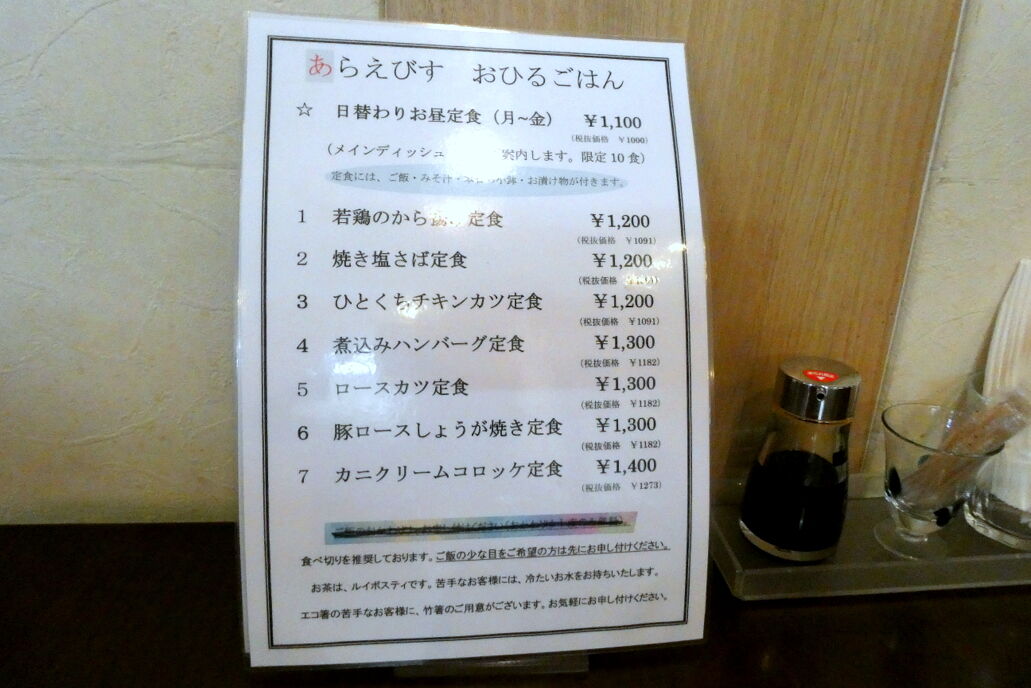 あらえびす おひるごはん
☆ 日替わりお昼定食（月~金） ￥1,100
（税抜価格 ￥1000）
（メインディッシュ 案内します。限定10食）
定食には、ご飯・みそ汁・本日の小鉢・お漬け物が付きます。
1 若鶏のから揚げ定食 ￥1,200
（税抜価格 ￥1091）
2 焼き塩さば定食 ￥1,200
（税抜価格
3 ひとくちチキンカツ定食 ￥1,200
（税抜価格 ￥1091）
4 煮込みハンバーグ定食 ￥1,300
（税抜価格 ￥1182）
5 ロースカツ定食 ￥1,300
（税抜価格 ￥1182）
6 豚ロースしょうが焼き定食 ￥1,300
（税抜価格 ￥1182）
7 カニクリームコロッケ定食 ￥1,400
（税抜価格 ￥1273）
食べ切りを推奨しております。ご飯の少な目をご希望の方は先にお申し付けください。
お茶は、ルイボスティです。苦手なお客様には、冷たいお水をお持ちいたします。
エコ箸の苦手なお客様に、竹箸のご用意がございます。お気軽にお申し付けください。